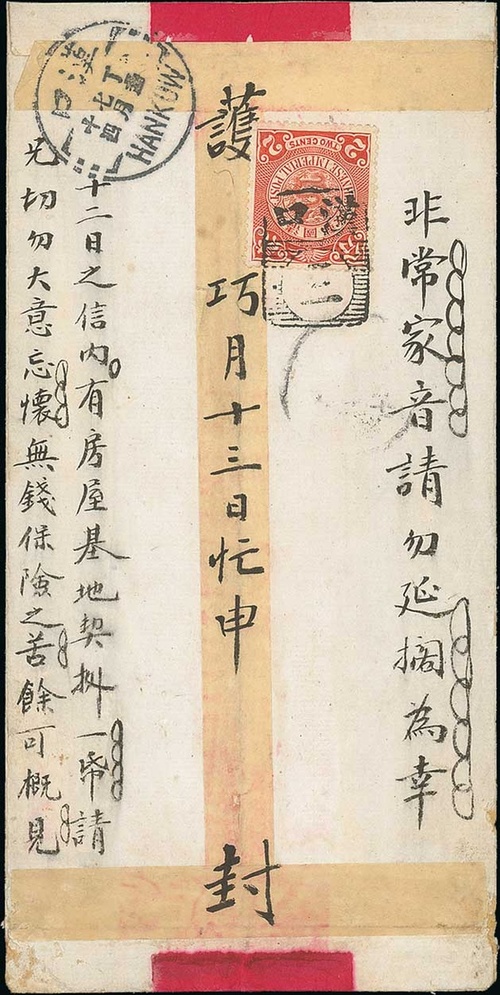 非常家音請勿延擱為幸
護
巧月十三日忙申
封
十二日之信內有房屋基地契一帋請
兄切勿大意忘懷無錢保險之苦餘可概見
漢口
丁未
七月
十四
HANKOW
2 TWO CENTS 2
CHINESE IMPERIAL POST
漢口